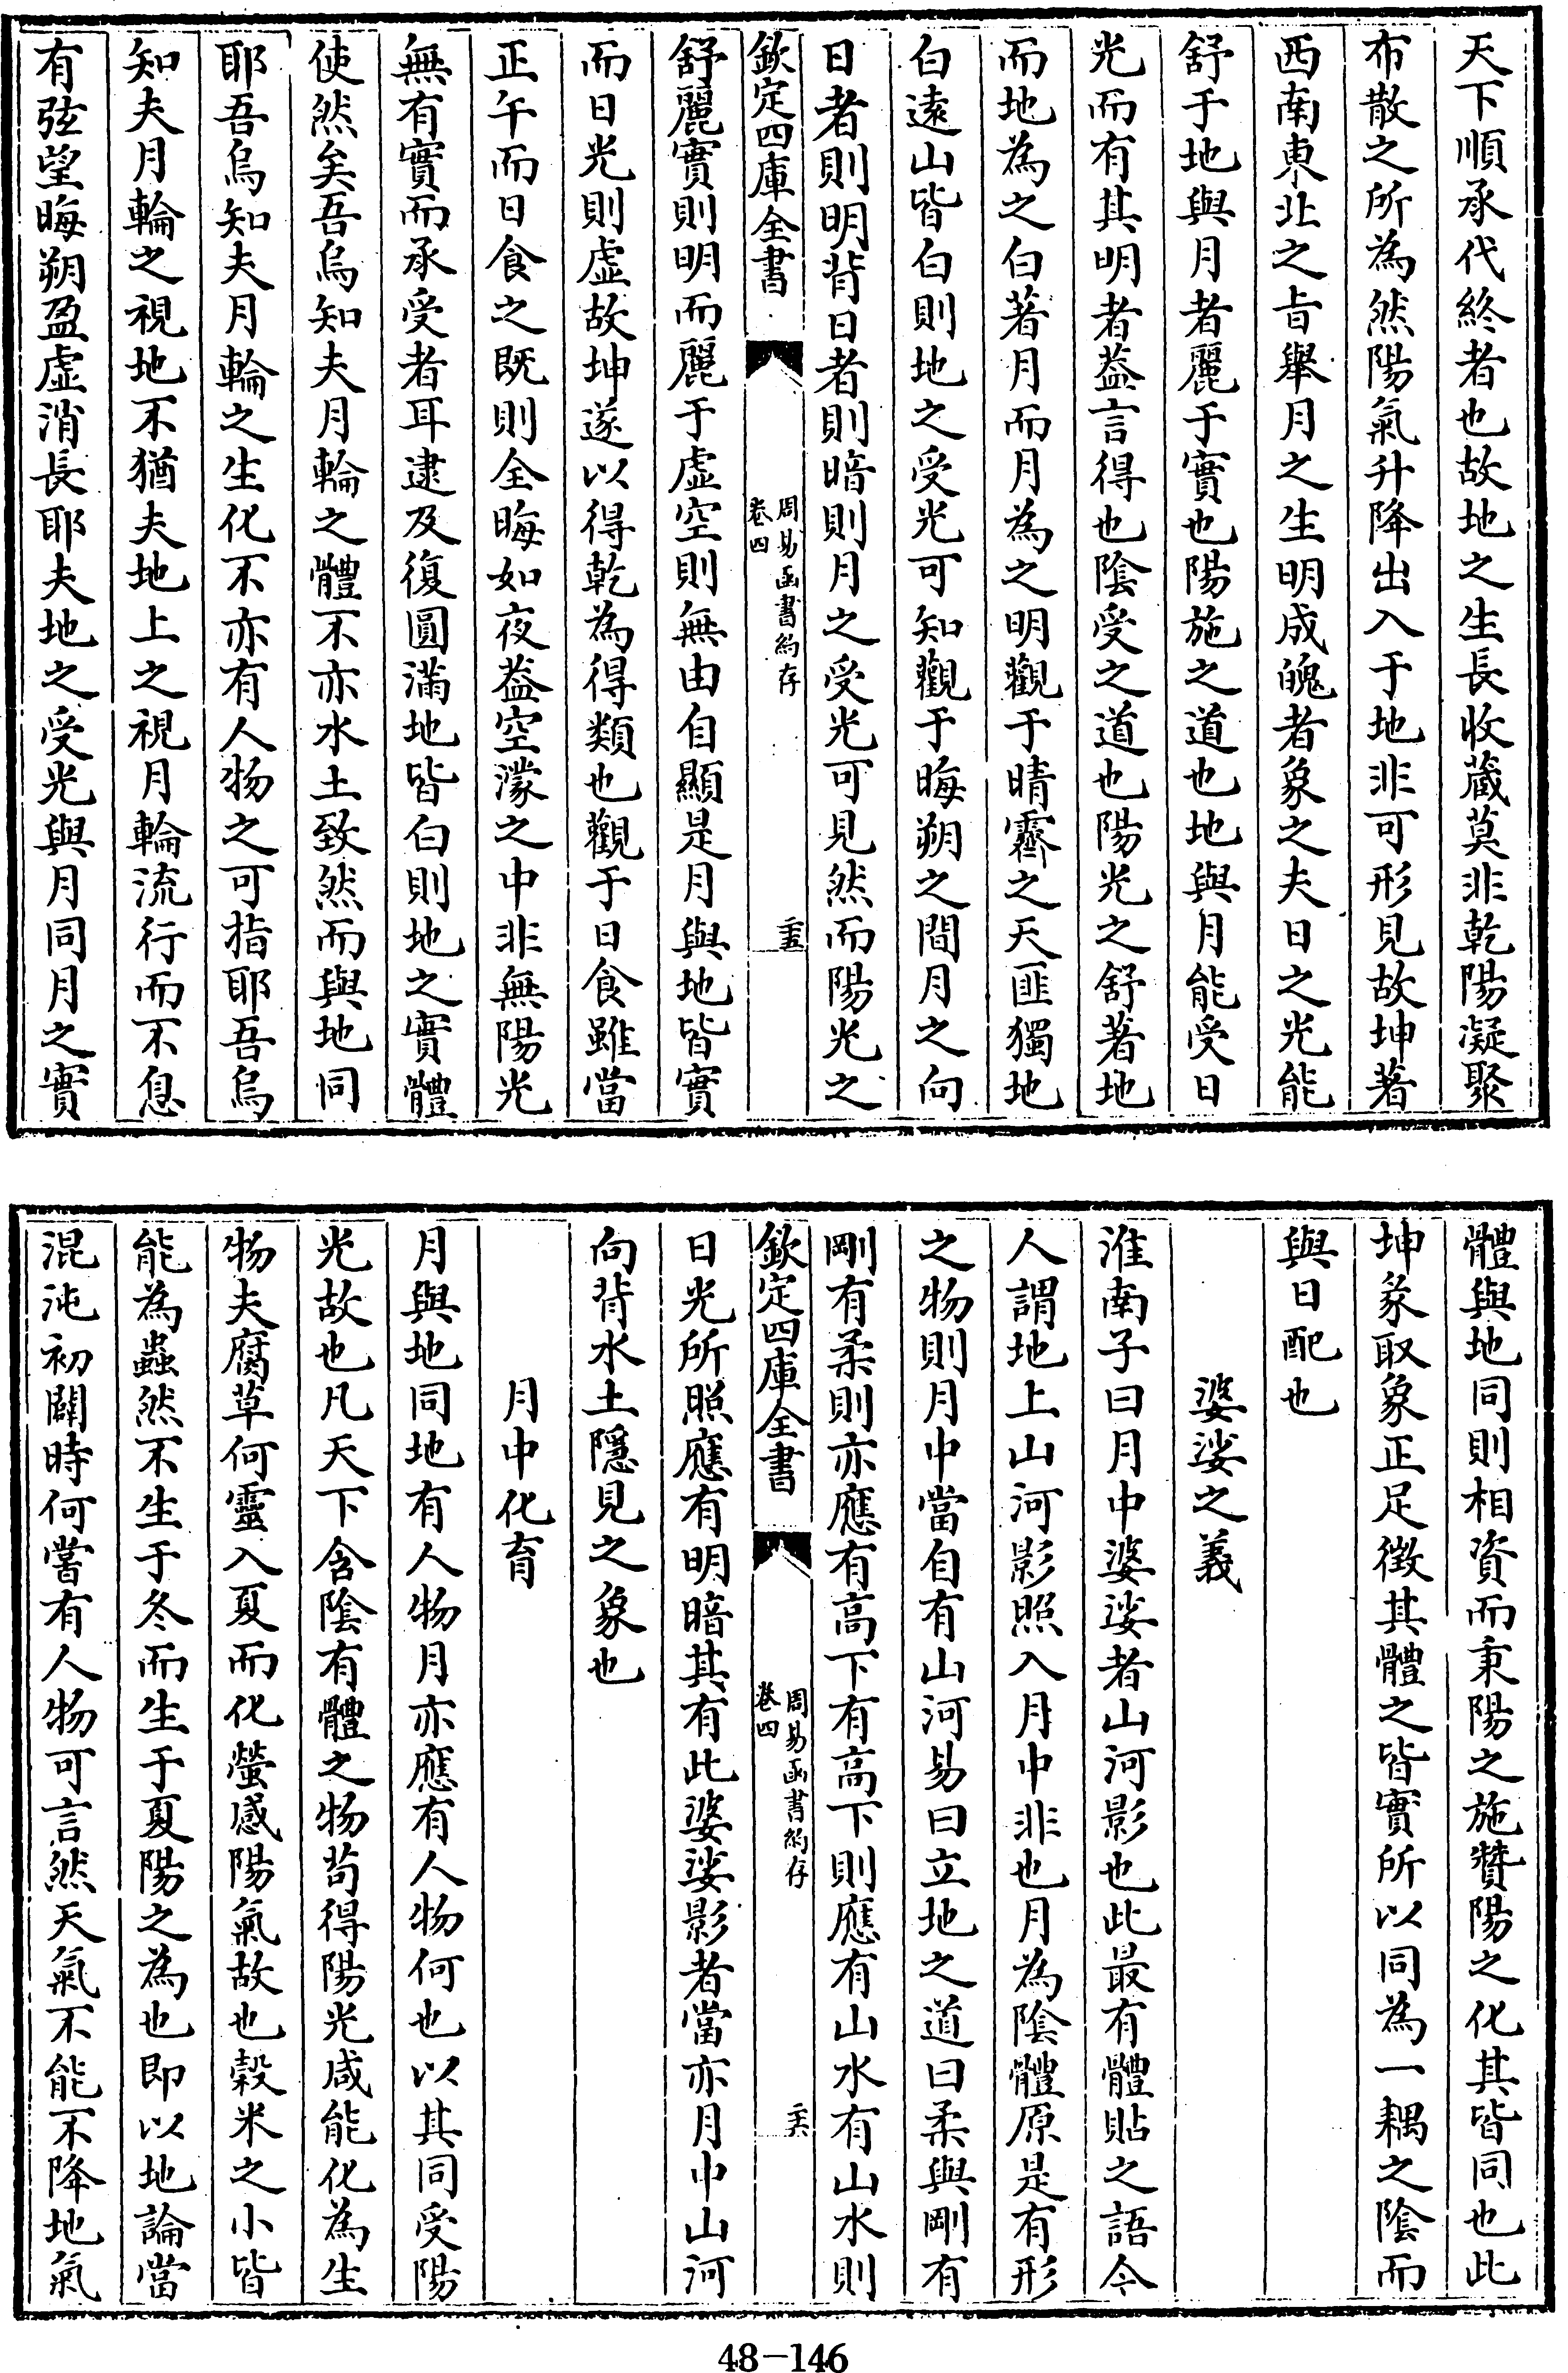 天下順承代終者也故地之生長收藏莫非乾陽凝聚
布散之所為然陽氣升降出入于地非可形見故坤著
西南東北之㫖舉月之生明成魄者象之夫日之光能
舒于地與月者麗于實也陽施之道也地與月能受日
光而有其明者葢言得也陰受之道也陽光之舒著地
而地為之白著月而月為之明觀于晴霽之天匪獨地
白遠山皆白則地之受光可知觀于晦朔之間月之向
日者則明背日者則暗則月之受光可見然而陽光之
欽定四庫全書
周易函書約存
卷四
舒麗實則明而麗于虛空則無由自顯是月與地皆實
而日光則虛故坤遂以得乾為得類也觀于日食雖當
正午而日食之既則全晦如夜葢空濛之中非無陽光
無有實而承受者耳逮及復圓滿地皆白則地之實體
使然矣吾烏知夫月輪之體不亦水土致然而與地同
耶吾烏知夫月輪之生化不亦有人物之可指耶吾烏
知夫月輪之視地不猶夫地上之視月輪流行而不息
有弦望晦朔盈虛消長耶夫地之受光與月同月之實
體與地同則相資而秉陽之施贊陽之化其皆同也此
坤彖取象正足徵其體之皆實所以同為一耦之陰而
與日配也
婆娑之義
淮南子曰月中婆娑者山河影也此最有體貼之語今
人謂地上山河影照入月中非也月為陰體原是有形
之物則月中當自有山河易曰立地之道曰柔與剛有
剛有柔則亦應有高下有高下則應有山水有山水則
欽定四庫全書
周易函書約存
卷四
日光所照應有明暗其有此婆娑影者當亦月中山河
向背水土隱見之象也
月中化育
月與地同地有人物月亦應有人物何也以其同受陽
光故也凡天下含陰有體之物苟得陽光咸能化為生
物夫腐草何靈入夏而化螢感陽氣故也榖米之小皆
能為蟲然不生于冬而生于夏陽之為也即以地論當
混沌初闢時何嘗有人物可言然天氣不能不降地氣
48-146